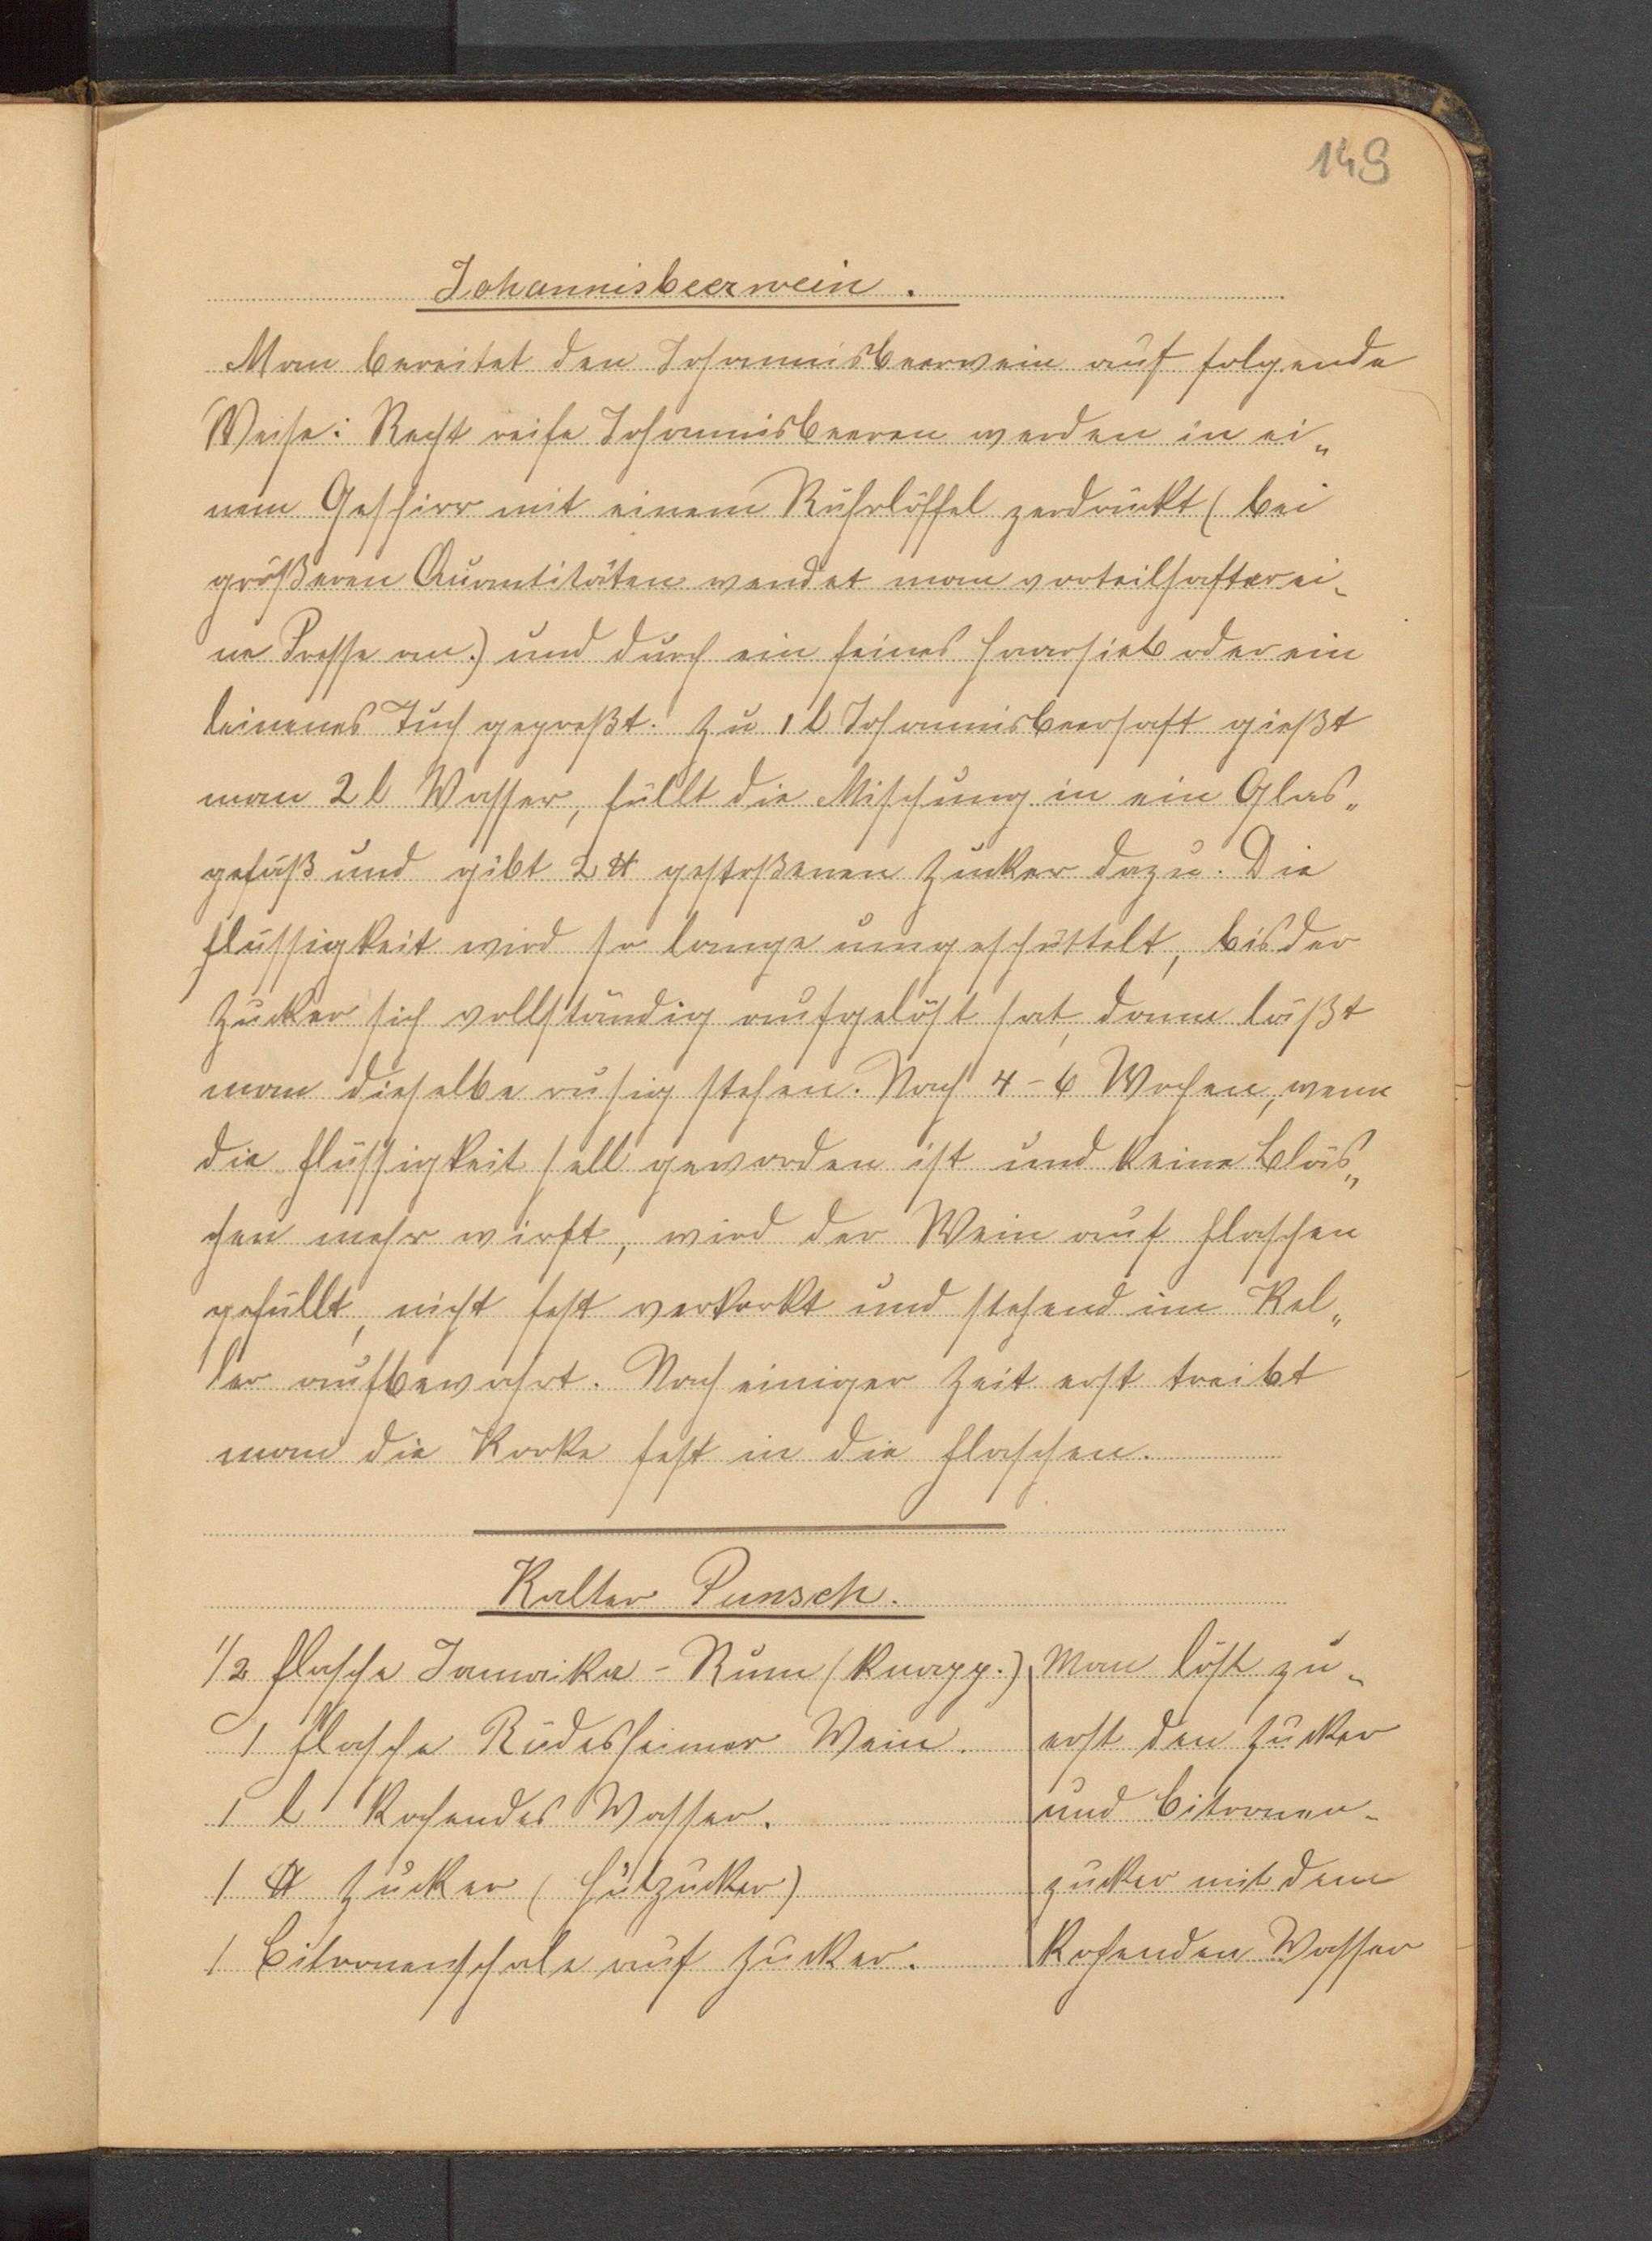 149
Johannisbeerwein.
Man bereitet den Johannisbeerwein auf folgende
Weise: Recht reife Johannisbeeren werden in ei„
nem Geschirr mit einem Rührlöffel zerdrückt (bei
größeren Quantitäten wendet man vorteilhafter ei-
ne Presse an.) und durch ein feines Haarsieb oder ein
leinenes Tuch gepreßt. Zu 1 l Johannisbeersaft gießt
man 2 l Wasser, füllt die Mischung in ein Glas„
gefäß und gibt 2 ℔ gestoßenen Zucker dazu. Die
Flüssigkeit wird so lange umgeschüttelt, bis der
Zucker sich vollständig aufgelöst hat, dann läßt
man dieselbe ruhig stehen. Nach 4-6 Wochen, wenn
die Flüssigkeit hell geworden ist und keine Bläs„
chen mehr wirft, wird der Wein auf Flaschen
gefüllt, nicht fest verkorkt und stehend im Kel„
ler aufbewahrt. Nach einiger Zeit erst treibt
man die Korke fest in die Flaschen.
Kalter Punsch.
1/2 Flasche Jamaika-Rum (knapp.)
1 Flasche Rüdesheimer Wein.
1 l kochendes Wasser.
1 ℔ Zucker (Hutzucker)
1 Citronenschale auf Zucker.
Man löst zu-
erst den Zucker
und Citronen-
zucker mit dem
kochenden Wasser